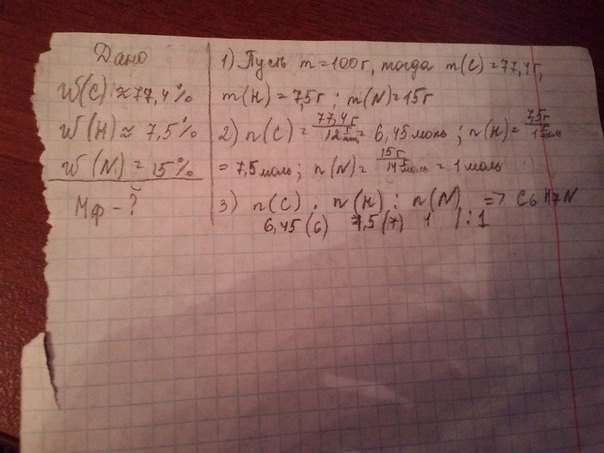 Дано
W(C) ≈ 77,4%
W(H) ≈ 7,5%
W(N) = 15%
Мф - ?
1) Пусть m = 100г, тогда m(C) = 77,4г,
m(H) = 7,5г ; m(N) = 15г
2) n(C) = 77,4г / 12 г/моль = 6,45 моль ; n(H) = 7,5г / 1 г/моль
= 7,5 моль ; n(N) = 15г / 14 г/моль = 1 моль
3) n(C) : n(H) : n(N) => C6H7N
6,45(6) 7,5(7) 1 /:1